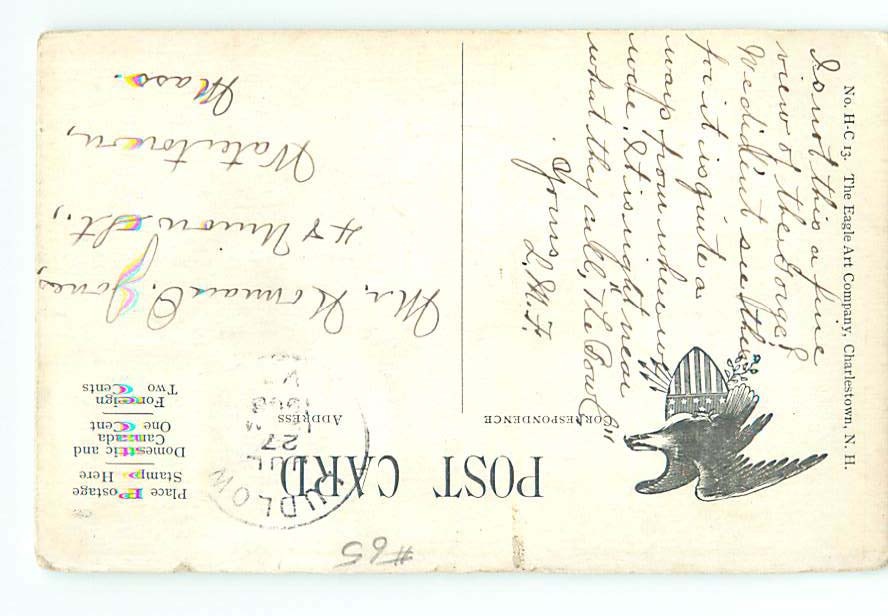 #65
POST CARD
CORRESPONDENCE
ADDRESS
Place Postage
Stamp Here
Domestic and
Canada
One Cent
Foreign
Two Cents
LUDLOW
JUL
27
No. H-C 13. The Eagle Art Company, Charlestown, N. H.
Is not this a fine
view of the Gorge?
We didn't see this
for it is quite a
way from where we
were. It is right near
what they call, "The Bowl"
Yours
L. M. F.
Mr. Norman O. Jones
48 Union St.,
Watertown,
Mass.